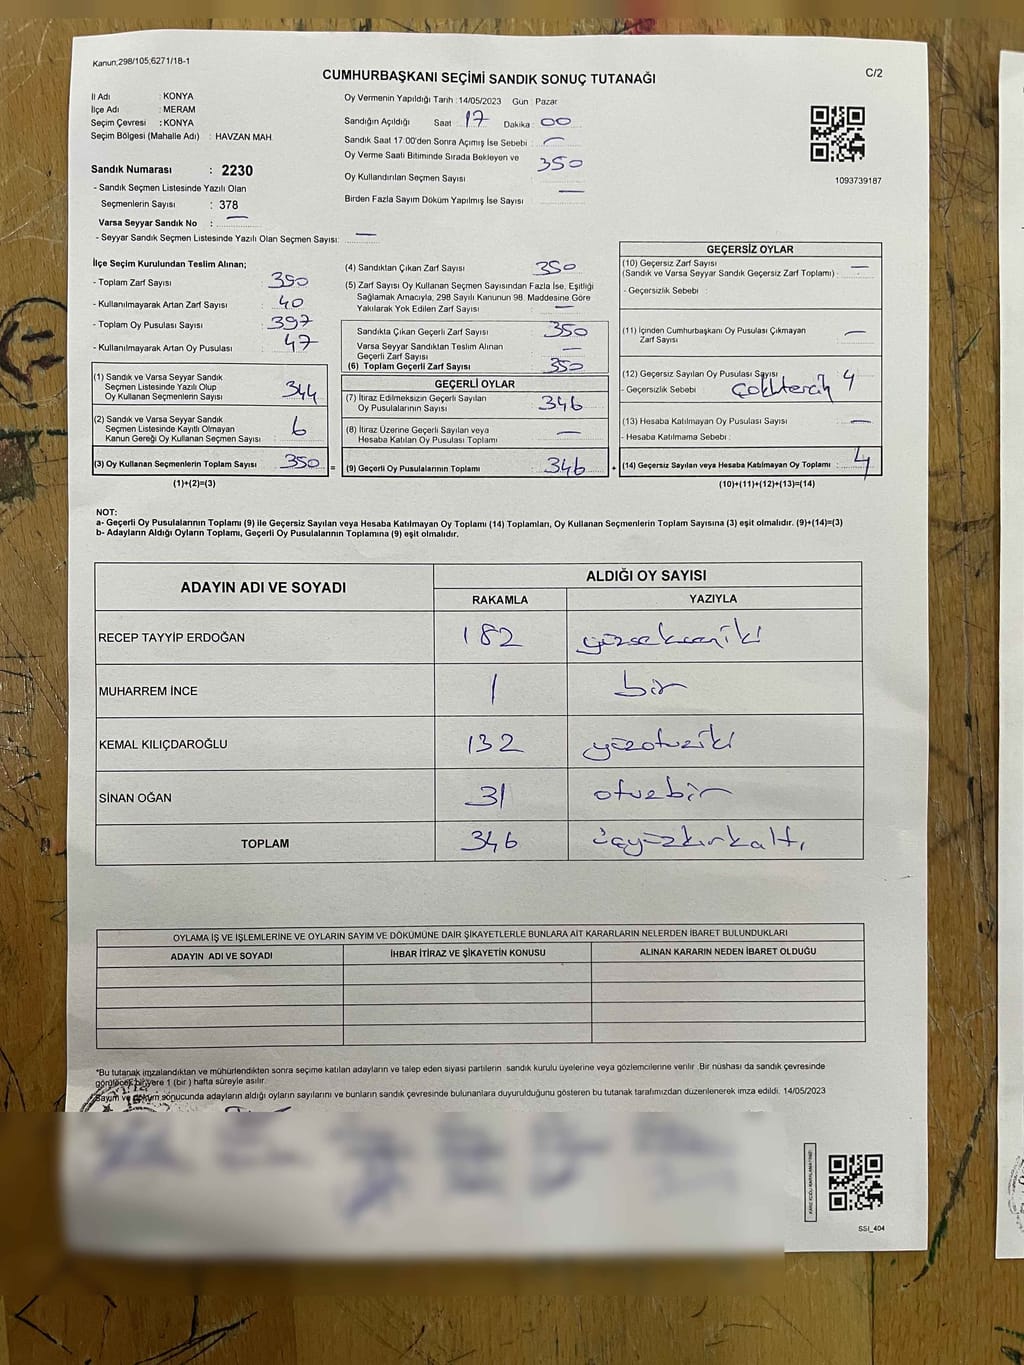 Kanun;298/105;6271/18-1
CUMHURBAŞKANI SEÇİMİ SANDIK SONUÇ TUTANAĞI
C/2
İl Adı : KONYA
İlçe Adı : MERAM
Seçim Çevresi : KONYA
Seçim Bölgesi (Mahalle Adı) : HAVZAN MAH.
Sandık Numarası : 2230
- Sandık Seçmen Listesinde Yazılı Olan
Seçmenlerin Sayısı : 378
Varsa Seyyar Sandık No : —
- Seyyar Sandık Seçmen Listesinde Yazılı Olan Seçmen Sayısı: —
Oy Vermenin Yapıldığı Tarih :14/05/2023 Gün : Pazar
Sandığın Açıldığı Saat : 17 Dakika : 00
Sandık Saat 17:00'den Sonra Açımış İse Sebebi : —
Oy Verme Saati Bitiminde Sırada Bekleyen ve
Oy Kullandırılan Seçmen Sayısı : 350
Birden Fazla Sayım Döküm Yapılmış İse Sayısı : —
1093739187
İlçe Seçim Kurulundan Teslim Alınan;
- Toplam Zarf Sayısı : 390
- Kullanılmayarak Artan Zarf Sayısı : 40
- Toplam Oy Pusulası Sayısı : 397
- Kullanılmayarak Artan Oy Pusulası : 47
(1) Sandık ve Varsa Seyyar Sandık
Seçmen Listesinde Yazılı Olup
Oy Kullanan Seçmenlerin Sayısı : 344
(2) Sandık ve Varsa Seyyar Sandık
Seçmen Listesinde Kayıtlı Olmayan
Kanun Gereği Oy Kullanan Seçmen Sayısı : 6
(3) Oy Kullanan Seçmenlerin Toplam Sayısı : 350 =
(1)+(2)=(3)
(4) Sandıktan Çıkan Zarf Sayısı : 350
(5) Zarf Sayısı Oy Kullanan Seçmen Sayısından Fazla İse, Eşitliği
Sağlamak Amacıyla; 298 Sayılı Kanunun 98. Maddesine Göre
Yakılarak Yok Edilen Zarf Sayısı : —
Sandıkta Çıkan Geçerli Zarf Sayısı : 350
Varsa Seyyar Sandıktan Teslim Alınan
Geçerli Zarf Sayısı : —
(6) Toplam Geçerli Zarf Sayısı : 350
GEÇERLİ OYLAR
(7) İtiraz Edilmeksizin Geçerli Sayılan
Oy Pusulalarının Sayısı : 346
(8) İtiraz Üzerine Geçerli Sayılan veya
Hesaba Katılan Oy Pusulası Toplamı : —
(9) Geçerli Oy Pusulalarının Toplamı : 346 +
GEÇERSİZ OYLAR
(10) Geçersiz Zarf Sayısı
(Sandık ve Varsa Seyyar Sandık Geçersiz Zarf Toplamı) : —
- Geçersizlik Sebebi :
(11) İçinden Cumhurbaşkanı Oy Pusulası Çıkmayan
Zarf Sayısı : —
(12) Geçersiz Sayılan Oy Pusulası Sayısı : 4
- Geçersizlik Sebebi : Çoklu tercih
(13) Hesaba Katılmayan Oy Pusulası Sayısı : —
- Hesaba Katılmama Sebebi :
(14) Geçersiz Sayılan veya Hesaba Katılmayan Oy Toplamı : 4
(10)+(11)+(12)+(13)=(14)
NOT:
a- Geçerli Oy Pusulalarının Toplamı (9) ile Geçersiz Sayılan veya Hesaba Katılmayan Oy Toplamı (14) Toplamları, Oy Kullanan Seçmenlerin Toplam Sayısına (3) eşit olmalıdır. (9)+(14)=(3)
b- Adayların Aldığı Oyların Toplamı, Geçerli Oy Pusulalarının Toplamına (9) eşit olmalıdır.
ADAYIN ADI VE SOYADI ALDIĞI OY SAYISI
RAKAMLA YAZIYLA
RECEP TAYYİP ERDOĞAN 182 yüzseksen iki
MUHARREM İNCE 1 bir
KEMAL KILIÇDAROĞLU 132 yüzotuziki
SİNAN OĞAN 31 otuzbir
TOPLAM 346 üçyüzkırkaltı
OYLAMA İŞ VE İŞLEMLERİNE VE OYLARIN SAYIM VE DÖKÜMÜNE DAİR ŞİKAYETLERLE BUNLARA AİT KARARLARIN NELERDEN İBARET BULUNDUKLARI
ADAYIN ADI VE SOYADI İHBAR İTİRAZ VE ŞİKAYETİN KONUSU ALINAN KARARIN NEDEN İBARET OLDUĞU
*Bu tutanak imzalandıktan ve mühürlendikten sonra seçime katılan adayların ve talep eden siyasi partilerin sandık kurulu üyelerine veya gözlemcilerine verilir. Bir nüshası da sandık çevresinde
görülecek bir yere 1 (bir) hafta süreyle asılır.
Sayım ve döküm sonucunda adayların aldığı oyların sayılarını ve bunların sandık çevresinde bulunanlara duyurulduğunu gösteren bu tutanak tarafımızdan düzenlenerek imza edildi. 14/05/2023
SSI_404